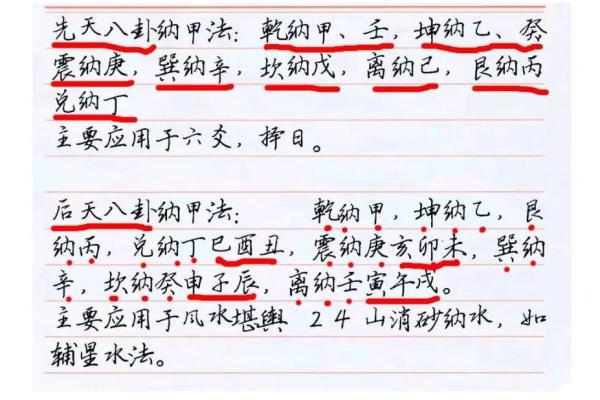 先天八卦纳甲法：乾纳甲、壬，坤纳乙、癸
震纳庚，巽纳辛，坎纳戊，离纳已，艮纳丙
兑纳丁
主要应用于六爻，择日。
后天八卦纳甲法： 乾纳甲，坤纳乙，艮
纳丙，兑纳丁巳酉丑，震纳庚亥卯未，巽纳
辛，坎纳癸申子辰，离纳壬寅午戌。
主要应用于风水堪舆 24 山消砂纳水，如
辅星水法。